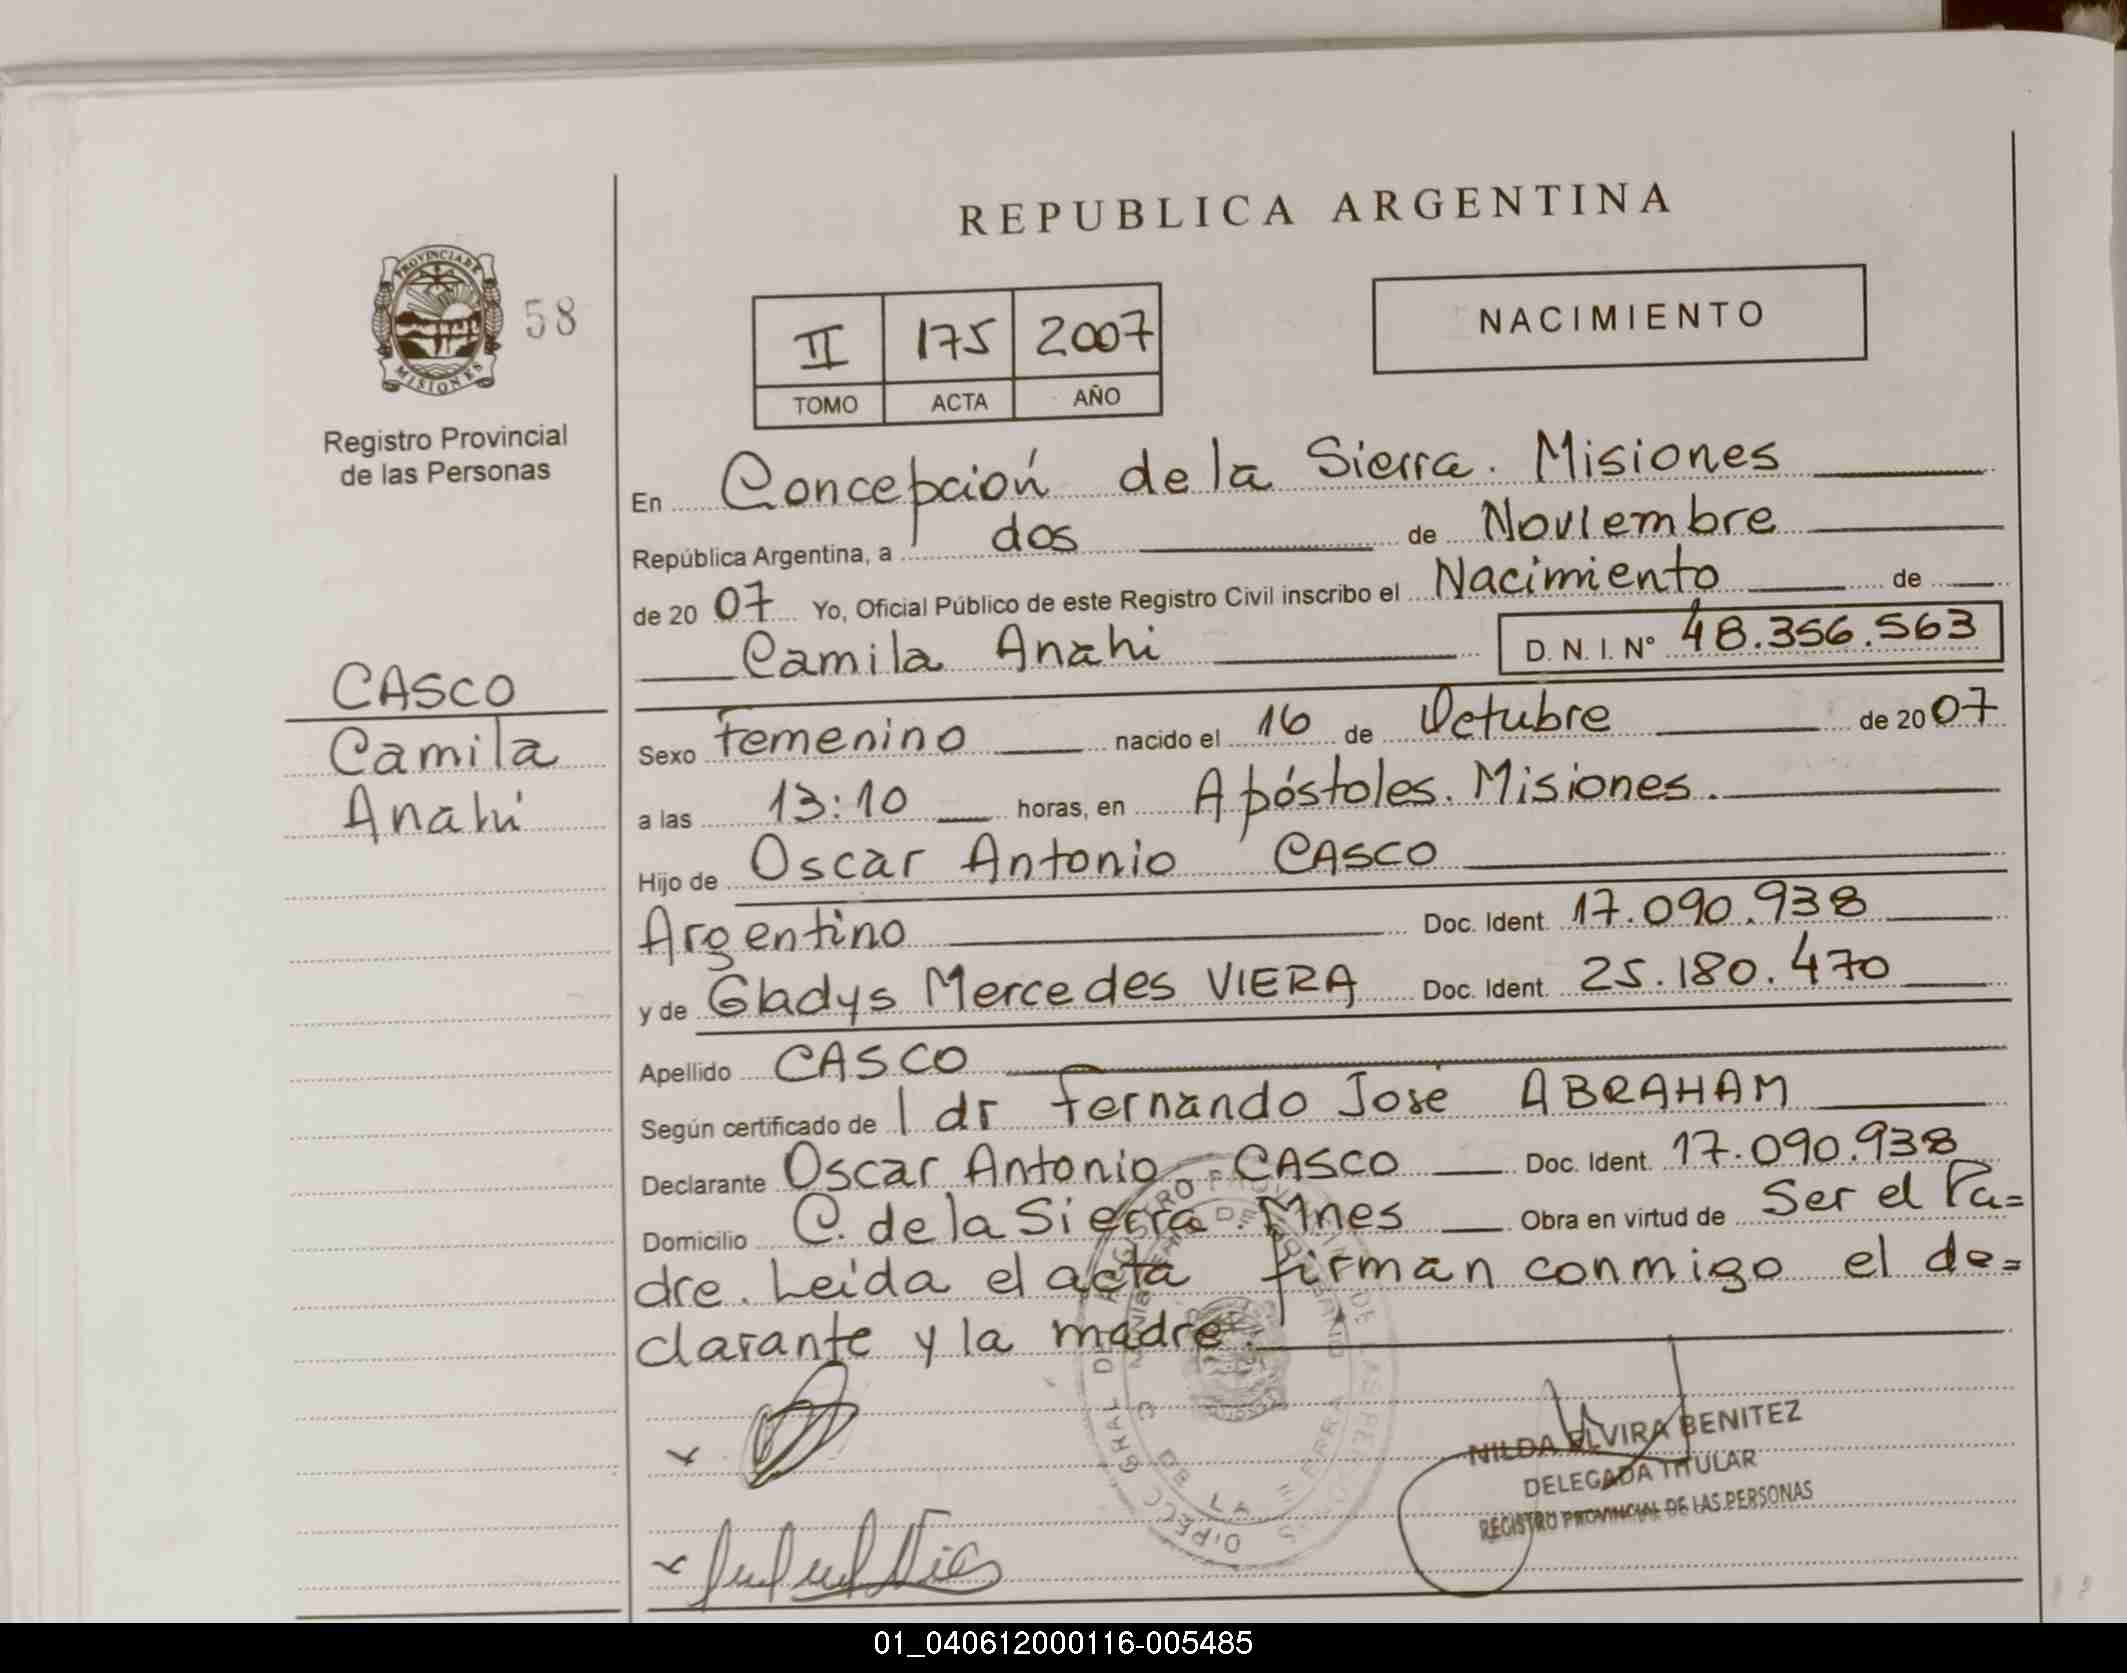 REPUBLICA ARGENTINA
PROVINCIA DE
MISIONES
58
Registro Provincial
de las Personas
II 175 2007
TOMO ACTA AÑO
NACIMIENTO
En Concepción de la Sierra. Misiones
República Argentina, a dos de Noviembre
de 2007 Yo, Oficial Público de este Registro Civil inscribo el Nacimiento de
Camila Anahi D. N. I. N° 48.356.563
CASCO
Camila
Anahi
Sexo Femenino nacido el 16 de Octubre de 2007
a las 13:10 horas, en Apóstoles. Misiones.
Hijo de Oscar Antonio CASCO
Argentino Doc. Ident. 17.090.938
y de Gladys Mercedes VIERA Doc. Ident. 25.180.470
Apellido CASCO
Según certificado de l dr Fernando José ABRAHAM
Declarante Oscar Antonio CASCO Doc. Ident. 17.090.938
Domicilio C. de la Sierra. Mnes Obra en virtud de Ser el Pa=
dre. Leida el acta firman conmigo el de=
clarante y la madre.
NILDA ELVIRA BENITEZ
DELEGADA TITULAR
REGISTRO PROVINCIAL DE LAS PERSONAS
01_040612000116-005485